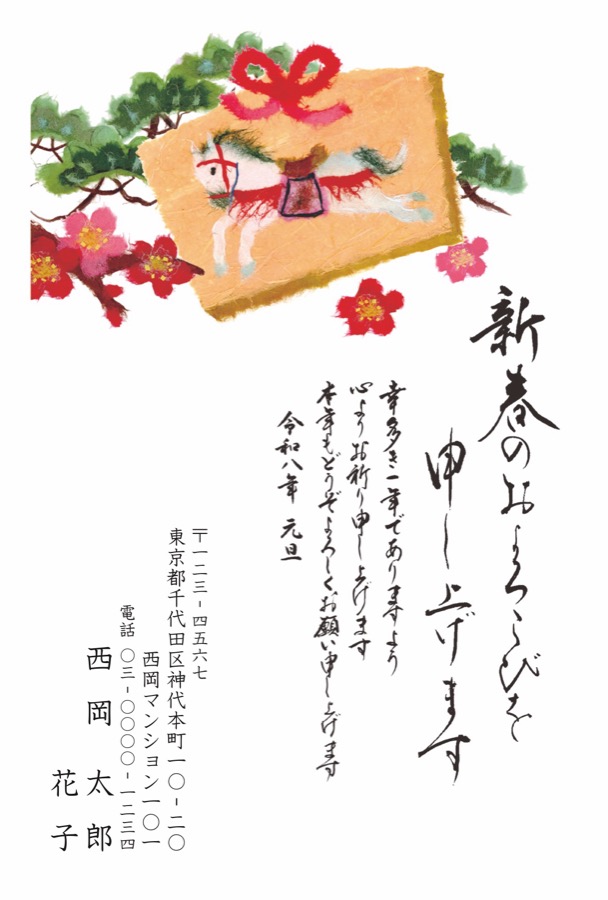 新春のおよろこびを
申し上げます
幸多き一年でありますよう
心よりお祈り申し上げます
本年もどうぞよろしくお願い申し上げます
令和八年 元旦
〒一二三-四五六七
東京都千代田区神代本町一〇-二〇
西岡マンション一〇一
電話 〇三-〇〇〇〇-一二三四
西岡 太郎
花子